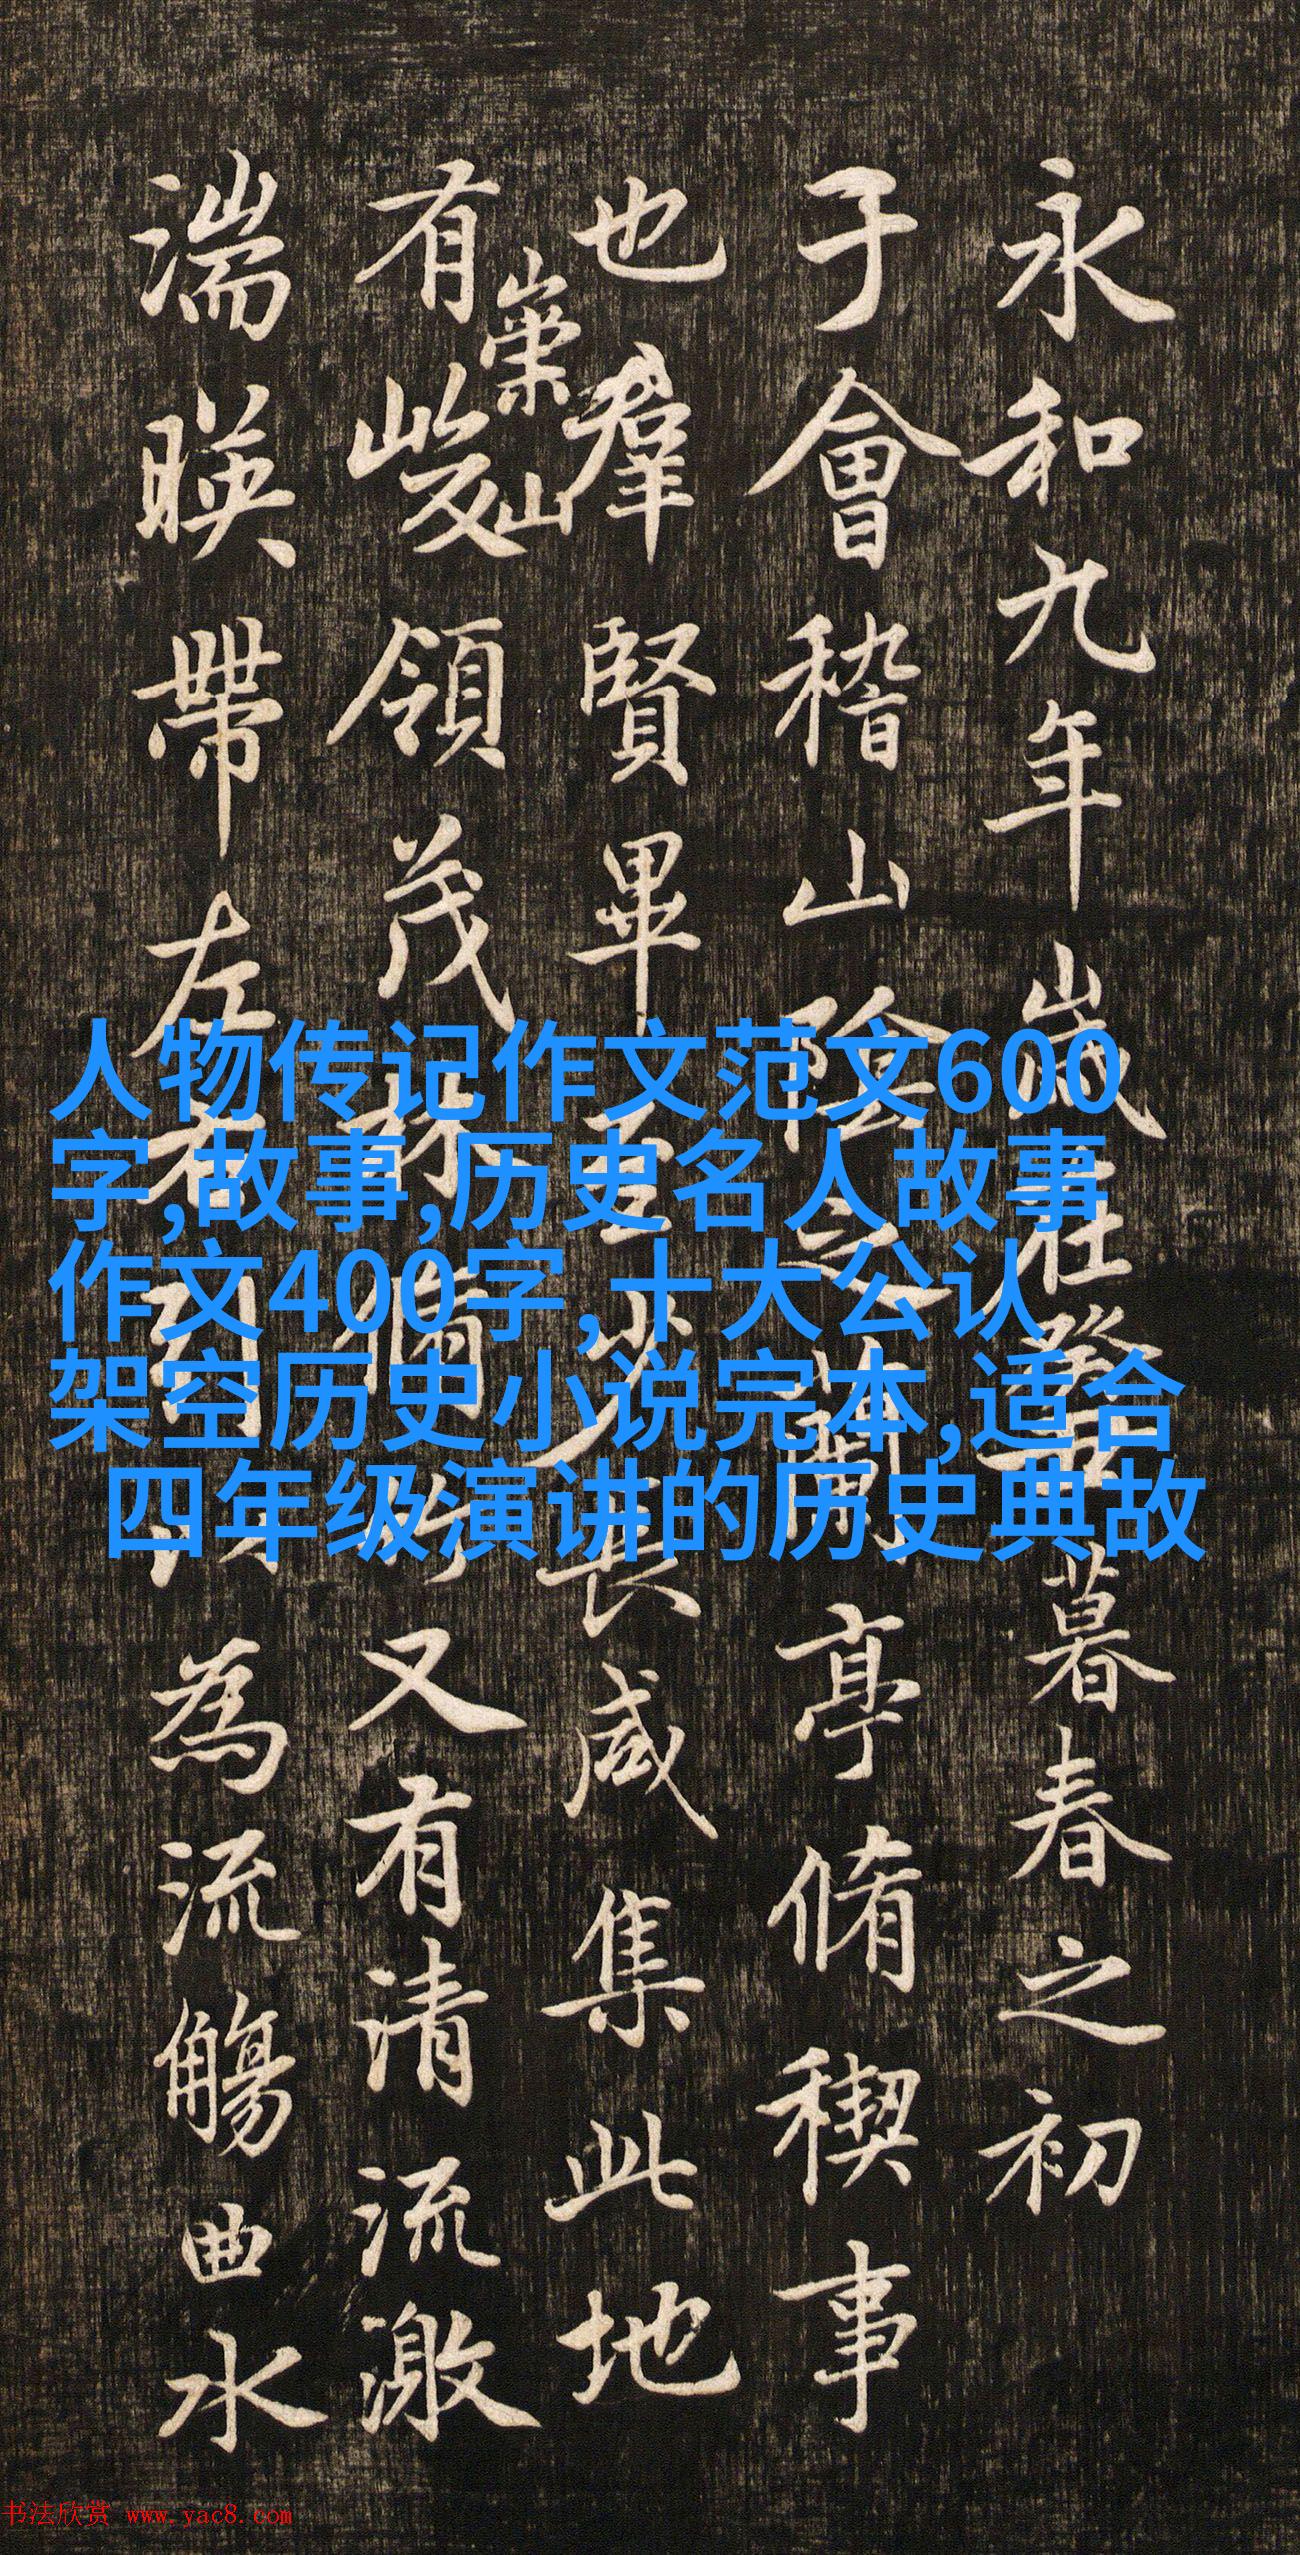 永和九年歲在癸丑暮春之初
于會稽山陰之蘭亭脩稧事
也羣賢畢至少長咸集此地
有崇山峻領茂林脩竹又有清流激
湍暎帶左右引以為流觴曲水
人物传记作文范文600
字,故事,历史名人故事
作文400字,十大公认
架空历史小说完本,适合
四年级演讲的历史典故
书法欣赏 www.yac8.com